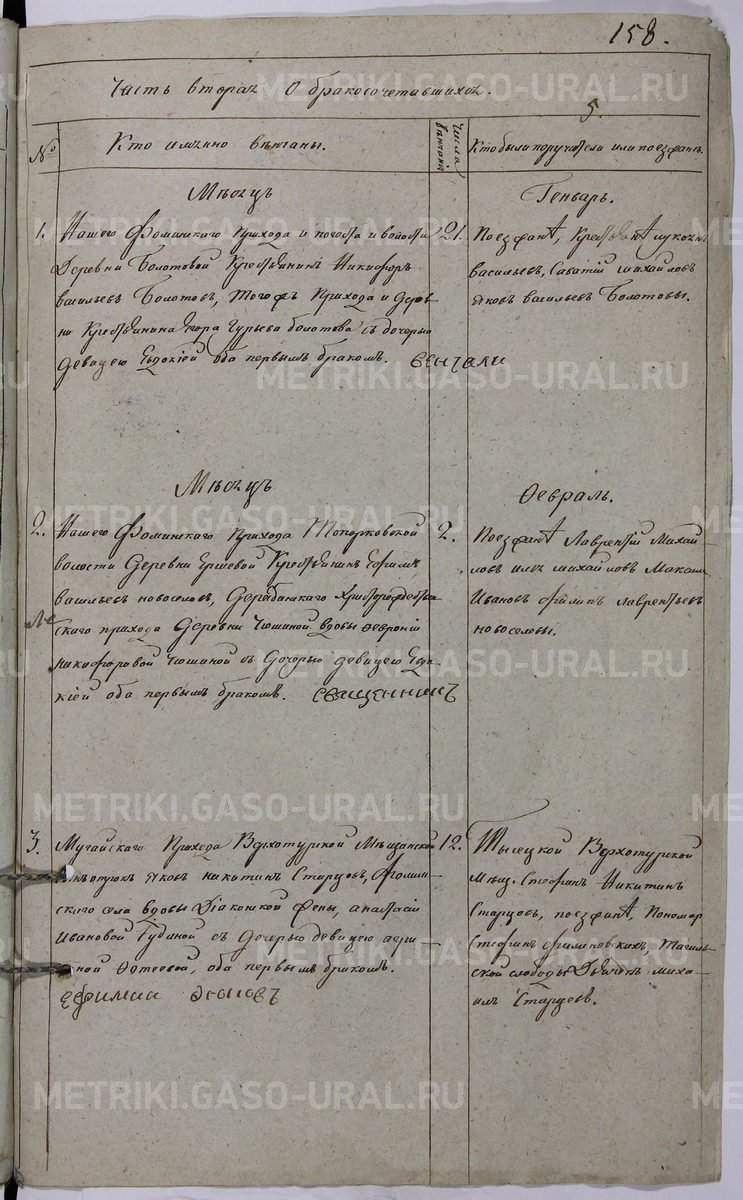 158.
Часть вторая О бракосочетавшихся.
5.
№
Кто имянно венчаны.
Числа венчания
Кто были поручатели или поезжане.
Месяц
Генварь.
1. Нашего Фоминскаго прихода и погоста и волости
Деревни Болотовой Крестьянинъ Никифоръ
васильевъ Болотовъ, Тогожъ Прихода и дерев
ни Крестьянина Егора Гурьева болотова съ дочерью
девицею Евдокіей оба первымъ бракомъ. венчали
21.
Поезжанѣ, Крестьянѣ
васильевъ, Саватій михайловъ
яковъ васильевъ Болотовы.
Месяц
Февраль.
2. Нашего Фоминскаго прихода Топорковской
волости Деревни Ершевой Крестьянинъ Ефимъ
васильевъ новоселовъ,
скаго прихода Деревни Чюшиной вдовы февроніи
никифоровой Чюшиной съ Дочерью девицею Евдо-
кіей оба первымъ бракомъ. священникъ
2.
Поезжанѣ Лаврентій Михай
ловъ михайловъ Максим
Ивановъ Филипъ лаврентьевъ
новоселовы.
3. Мугайскаго Прихода Верхотурской Мещанской
яковъ никитинъ Старцовъ, Фомин
скаго села вдовы Діаконской жены, анастасіи
Ивановой Губиной съ дочерью девицею
Фотеевой, оба первымъ бракомъ.
12.
Тысецкой Верхотурской
Мещ. Стефанъ Никитинъ
Старцовъ, поезжанѣ, Пономар
Стефанъ Филиповскихъ, Тагиль
ской слободы Дьячекъ миха-
илъ Старцевъ.
METRIKI.GASO-URAL.RU